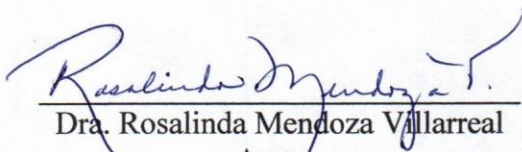 Rosalinda Mendoza V.
Dra. Rosalinda Mendoza Villarreal